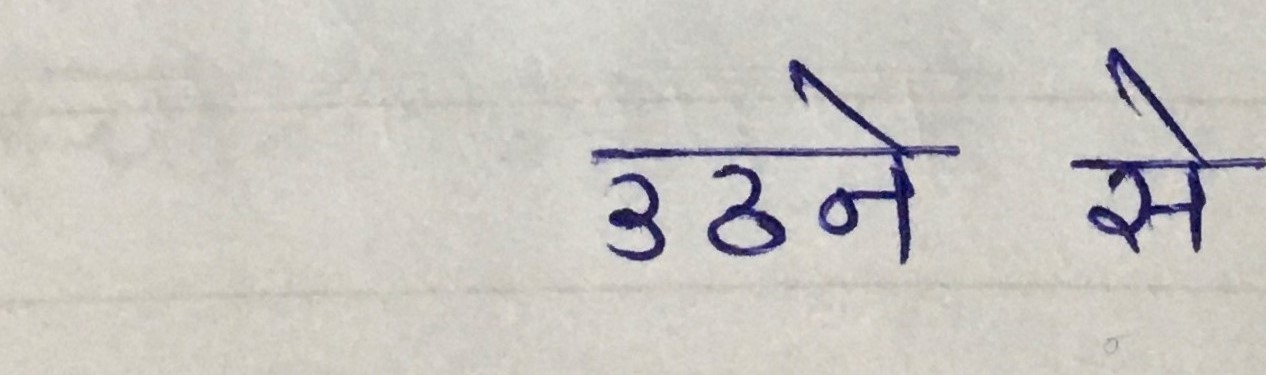 उठने से